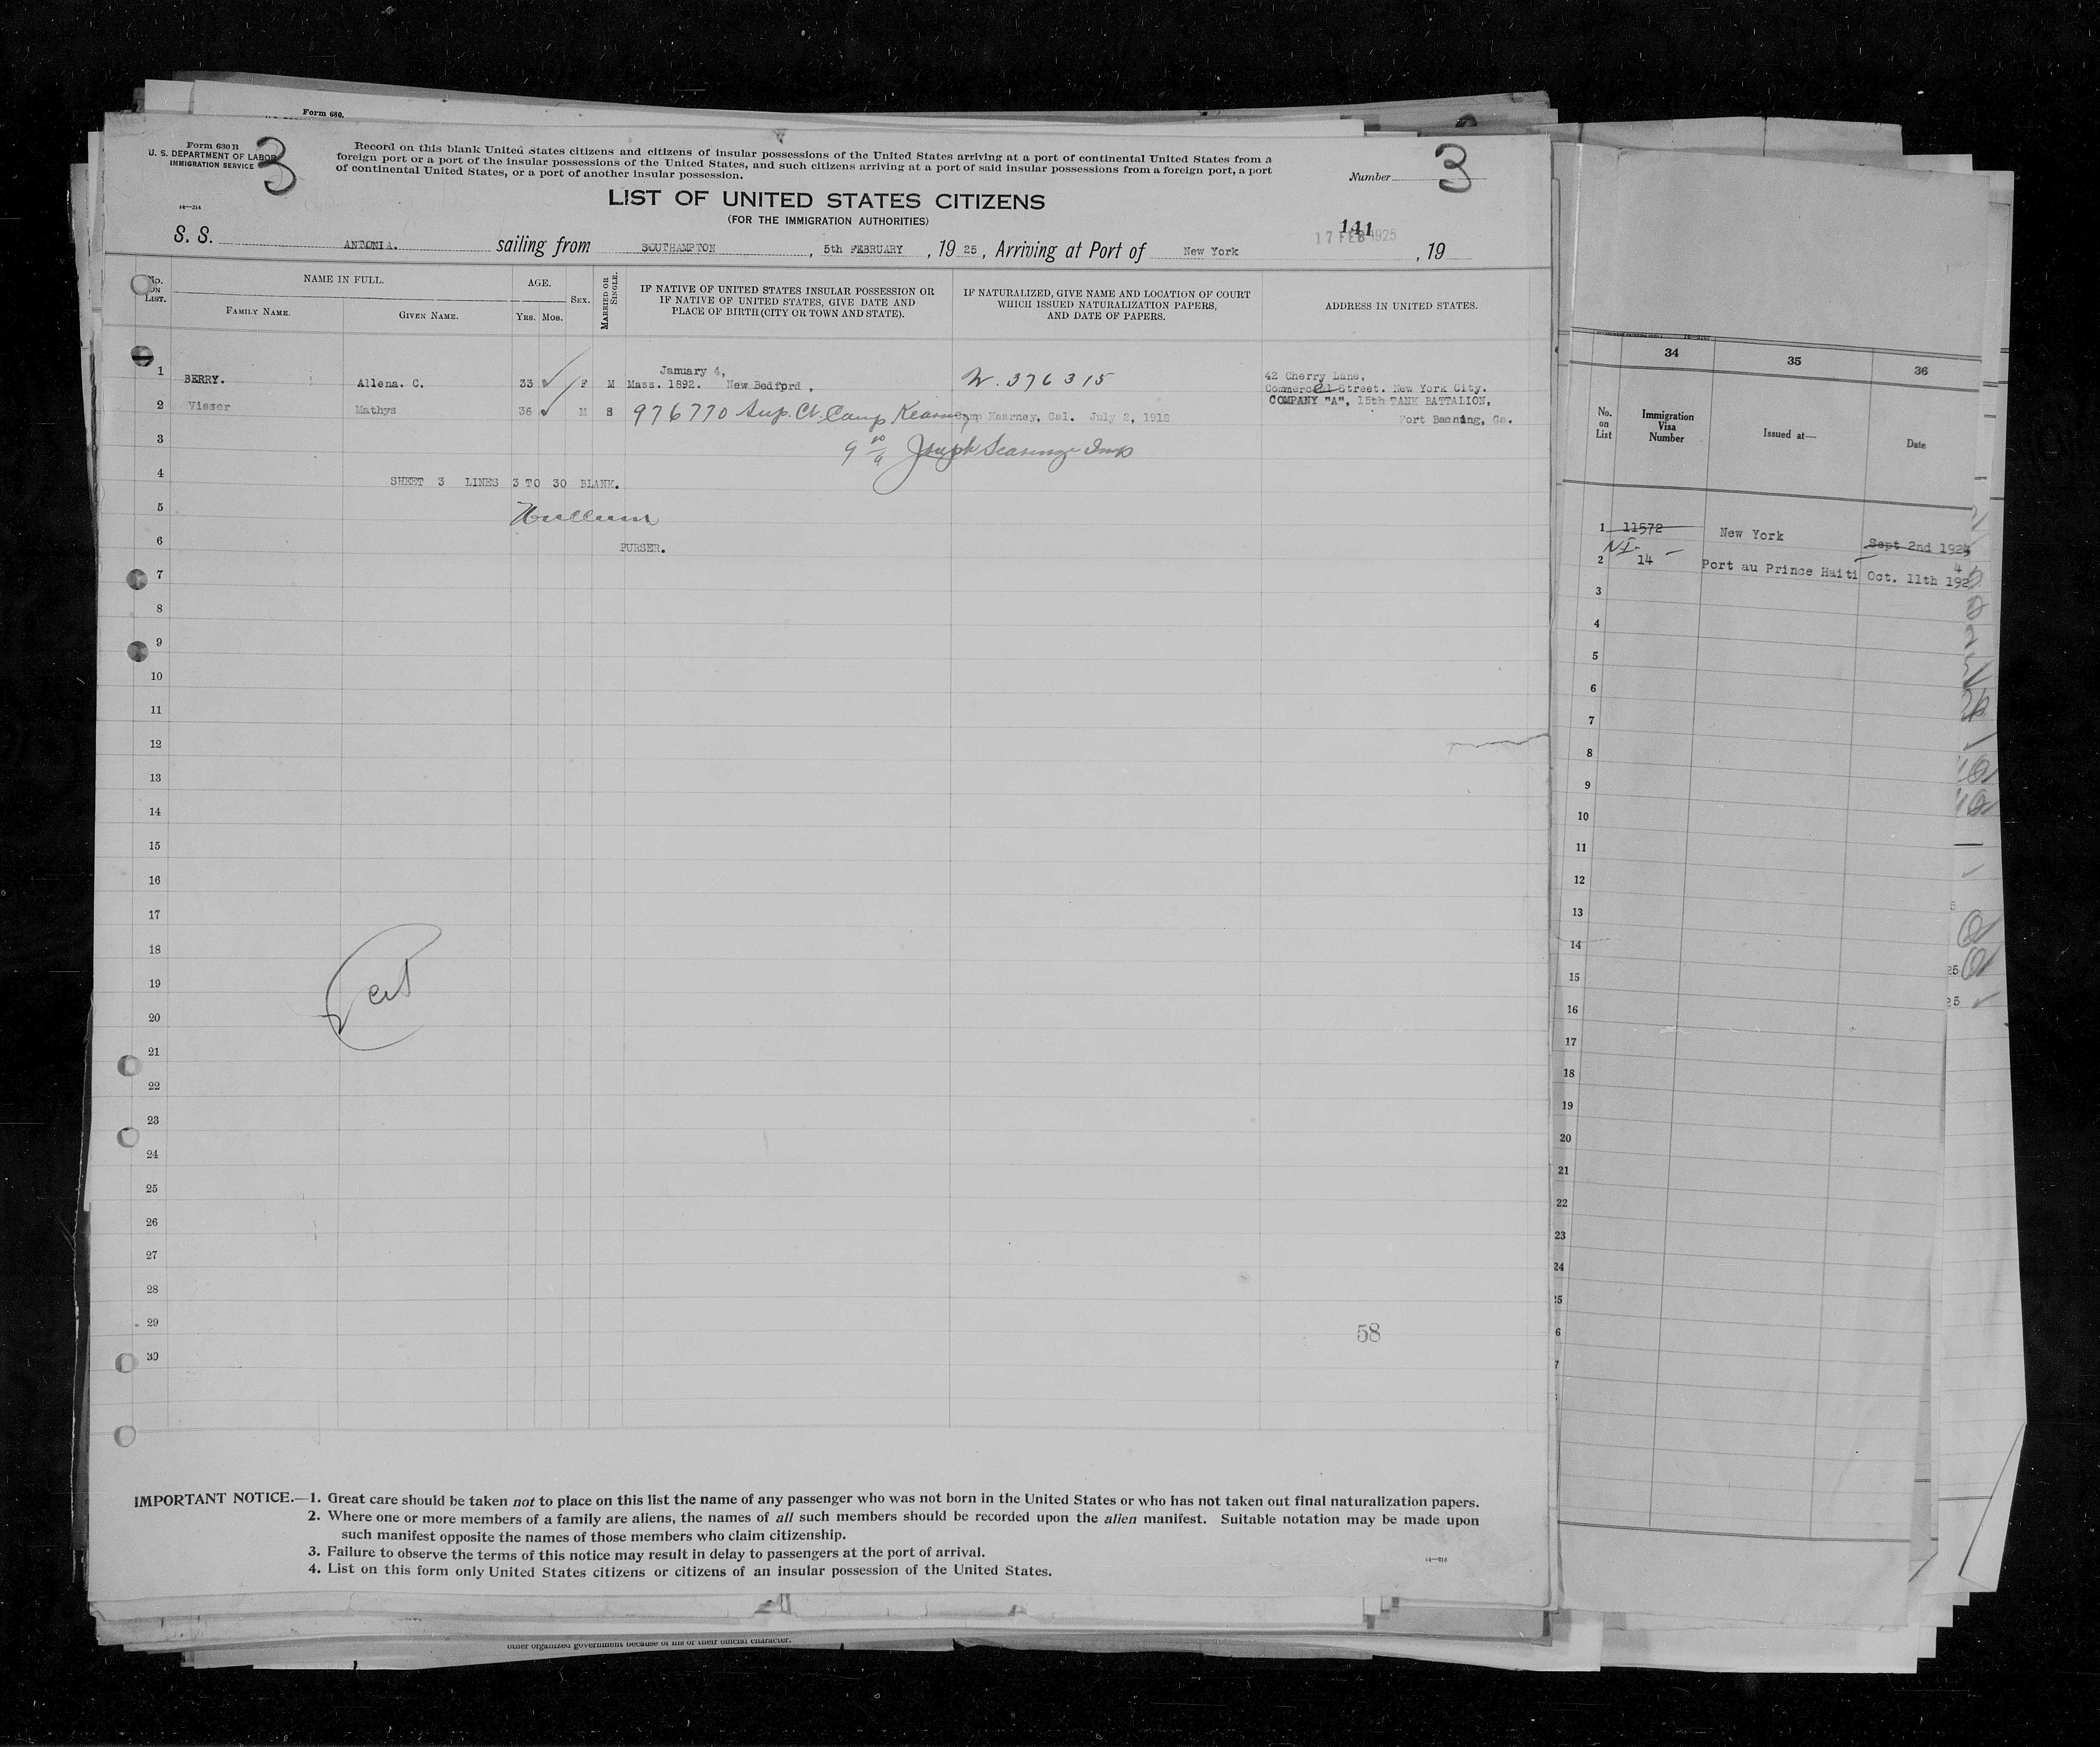 Form 680.
Form 630 B
U. S. DEPARTMENT OF LABOR
IMMIGRATION SERVICE
3
Record on this blank United States citizens and citizens of insular possessions of the United States arriving at a port of continental United States from a
foreign port or a port of the insular possessions of the United States, and such citizens arriving at a port of said insular possessions from a foreign port, a port
of continental United States, or a port of another insular possession.
Number 3
14—214
LIST OF UNITED STATES CITIZENS
(FOR THE IMMIGRATION AUTHORITIES)
141
17 FEB 1925
S. S. ANTONIA. sailing from SOUTHAMPTON, 5th FEBRUARY, 19 25, Arriving at Port of New York, 19
No. ON LIST.
NAME IN FULL.
FAMILY NAME. GIVEN NAME.
AGE.
YRS. MOS.
SEX.
MARRIED OR SINGLE.
IF NATIVE OF UNITED STATES INSULAR POSSESSION OR
IF NATIVE OF UNITED STATES, GIVE DATE AND
PLACE OF BIRTH (CITY OR TOWN AND STATE).
IF NATURALIZED, GIVE NAME AND LOCATION OF COURT
WHICH ISSUED NATURALIZATION PAPERS,
AND DATE OF PAPERS.
ADDRESS IN UNITED STATES.
January 4,
42 Cherry Lane,
1 BERRY. Allena. C. 33 F M Mass. 1892. New Bedford, W. 376315 Commercial Street. New York City.
COMPANY "A", 15th TANK BATTALION,
2 Visser Mathys 36 M S 976770 Sup. Ct. Camp Kearney Camp Kearney, Cal. July 2, 1918 Fort Benning, Ga.
3
Joseph
4
SHEET 3 LINES 3 TO 30 BLANK.
5
6
PURSER.
7
8
9
10
11
12
13
14
15
16
17
18
19
20
21
22
23
24
25
26
27
28
29
58
30
IMPORTANT NOTICE.—1. Great care should be taken not to place on this list the name of any passenger who was not born in the United States or who has not taken out final naturalization papers.
2. Where one or more members of a family are aliens, the names of all such members should be recorded upon the alien manifest. Suitable notation may be made upon
such manifest opposite the names of those members who claim citizenship.
3. Failure to observe the terms of this notice may result in delay to passengers at the port of arrival.
4. List on this form only United States citizens or citizens of an insular possession of the United States.
other organized government because of his or their official character.
34 35 36
No. on List
Immigration Visa Number
Issued at—
Date
1 11572 New York Sept 2nd 1924
NI-
2 14 Port au Prince Haiti Oct. 11th 1924
3
4
5
6
7
8
9
10
11
12
13
14
15
16
17
18
19
20
21
22
23
24
25
25